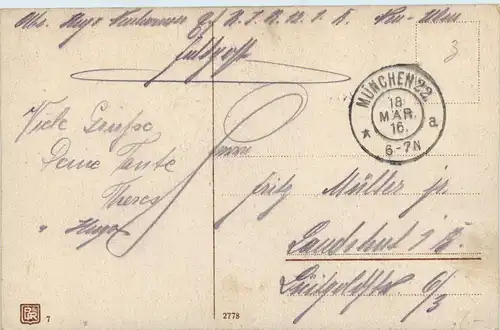 Abs. Hugo
Feldpost
3
MÜNCHEN 22.
18.
MÄR.
16.
* a
6-7N
Viele Grüße
Deine Tante
Theres
u Hugo
Herrn
Fritz Müller jr.
Landshut i/B.
Luitpoldstr 6/3
7
2778